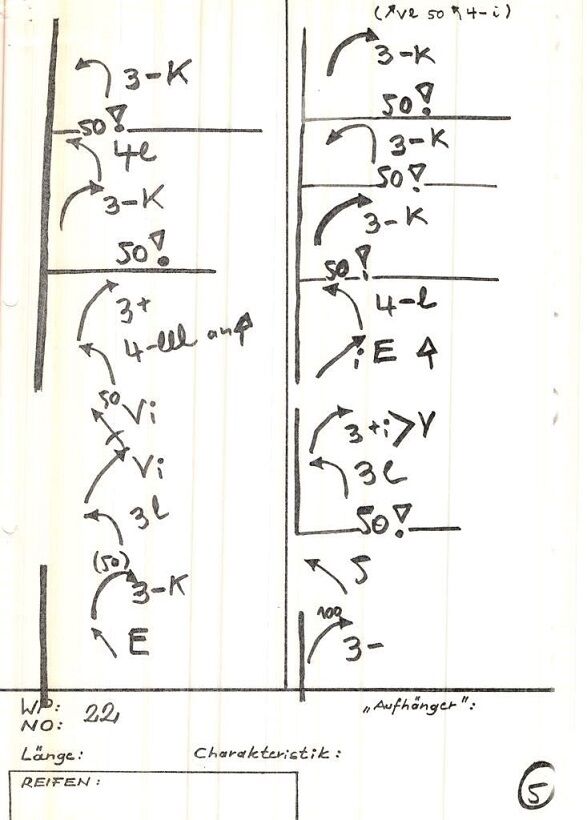 3-K
50!
4l
3-K
50!
3+
4-lll an
50
Vi
Vi
3l
(50)
3-K
E
(Ve 50 4-i)
3-K
50!
3-K
50!
3-K
50!
4-l
iE
3+i>V
3l
50!
5
100
3-
WP:
NO: 22
"Aufhänger":
Länge: Charakteristik:
REIFEN:
5